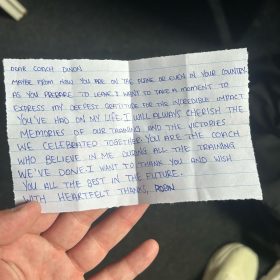 DEAR COACH
MAYBE FROM NOW YOU ARE ON THE PLANE OR EVEN IN YOUR COUNTRY
AS YOU PREPARE TO LEAVE, I WANT TO TAKE A MOMENT TO
EXPRESS MY DEEPEST GRATITUDE FOR THE INCREDIBLE IMPACT
YOU'VE HAD ON MY LIFE. I WILL ALWAYS CHERISH THE
MEMORIES OF OUR TRAINING AND THE VICTORIES
WE CELEBRATED TOGETHER. YOU ARE THE COACH
WHO BELIEVE IN ME DURING ALL THE TRAINING
WE'VE DONE. I WANT TO THANK YOU AND WISH
YOU ALL THE BEST IN THE FUTURE.
WITH HEARTFELT THANKS,